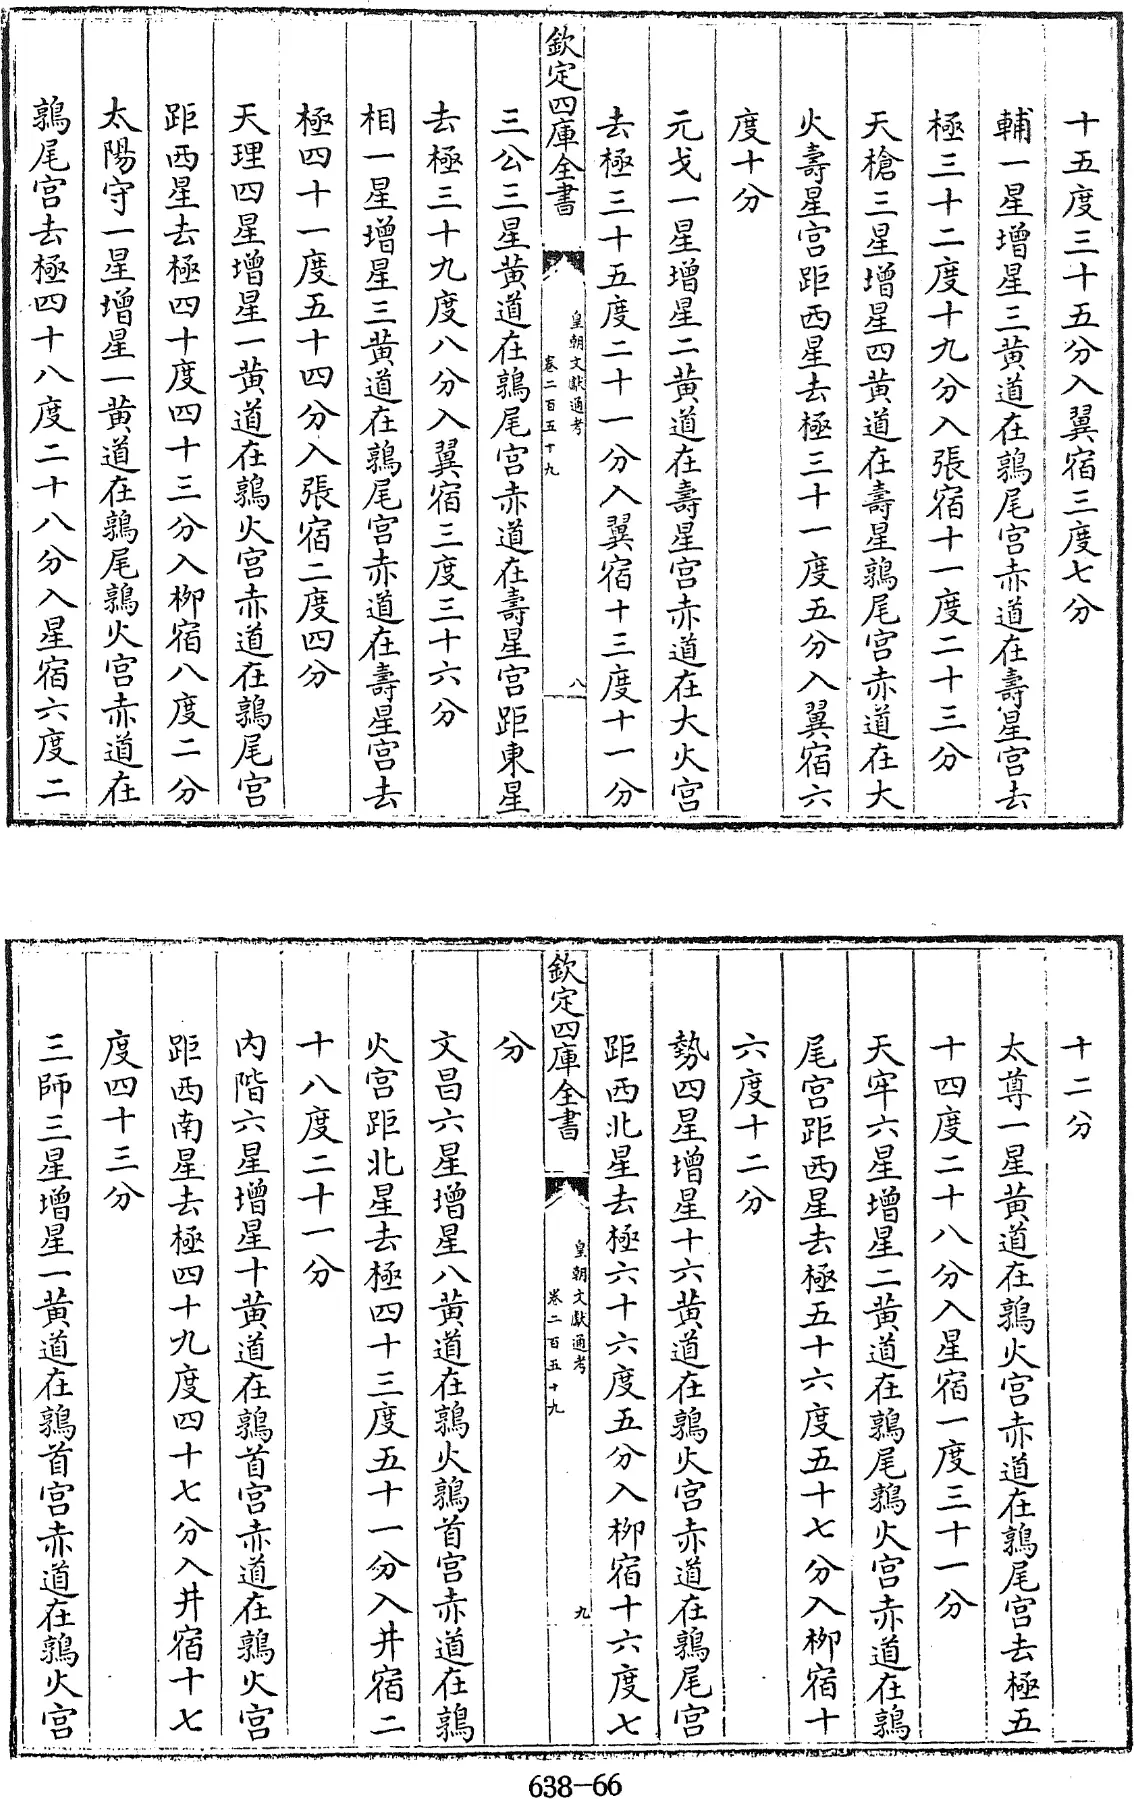 十五度三十五分入翼宿三度七分
輔一星增星三黃道在鶉尾宮赤道在壽星宮去
極三十二度十九分入張宿十一度二十三分
天槍三星增星四黃道在壽星鶉尾宮赤道在大
火壽星宮距西星去極三十一度五分入翼宿六
度十分
元戈一星增星二黃道在壽星宮赤道在大火宮
去極三十五度二十一分入翼宿十三度十一分
欽定四庫全書
皇朝文獻通考
卷二百五十九
八
三公三星黃道在鶉尾宮赤道在壽星宮距東星
去極三十九度八分入翼宿三度三十六分
相一星增星三黃道在鶉尾宮赤道在壽星宮去
極四十一度五十四分入張宿二度四分
天理四星增星一黃道在鶉火宮赤道在鶉尾宮
距西星去極四十度四十三分入柳宿八度二分
太陽守一星增星一黃道在鶉尾鶉火宮赤道在
鶉尾宮去極四十八度二十八分入星宿六度二
十二分
太尊一星黃道在鶉火宮赤道在鶉尾宮去極五
十四度二十八分入星宿一度三十一分
天牢六星增星二黃道在鶉尾鶉火宮赤道在鶉
尾宮距西星去極五十六度五十七分入柳宿十
六度十二分
勢四星增星十六黃道在鶉火宮赤道在鶉尾宮
距西北星去極六十六度五分入柳宿十六度七
欽定四庫全書
皇朝文獻通考
卷二百五十九
九
分
文昌六星增星八黃道在鶉火鶉首宮赤道在鶉
火宮距北星去極四十三度五十一分入井宿二
十八度二十一分
內階六星增星十黃道在鶉首宮赤道在鶉火宮
距西南星去極四十九度四十七分入井宿十七
度四十三分
三師三星增星一黃道在鶉首宮赤道在鶉火宮
638-66